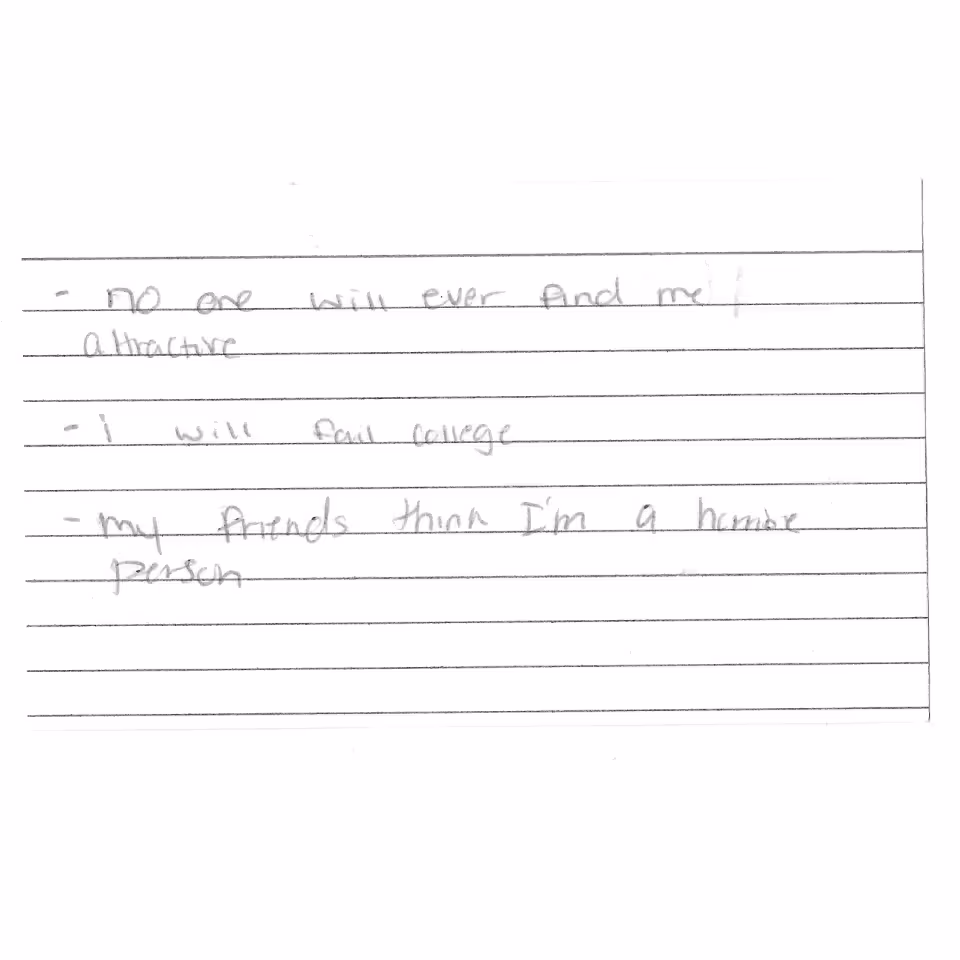 - no one will ever find me
attractive
- i will fail college
- my friends think I'm a horrible
person